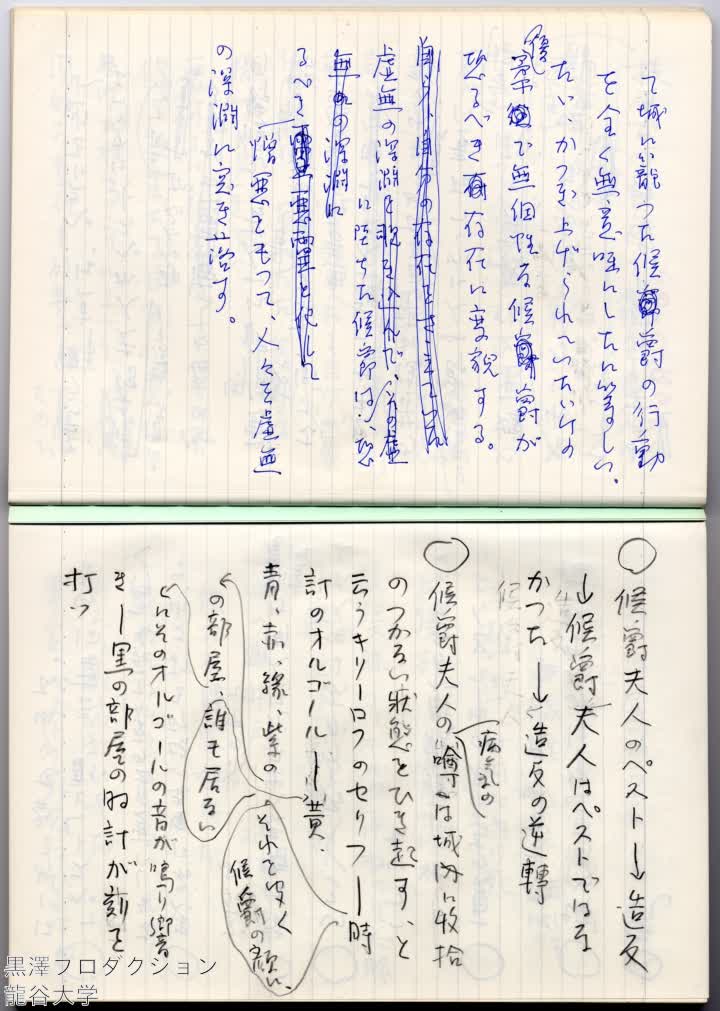 て城に籠つた候爵の行動
を全く無意味にしたに等しい。
たい、かつぎ上げられていただけの
優柔で無個性な候爵が
恐るべき存在に変貌する。
自分、自分の存在をさえ
虚無の深淵を覗き込んで、その虚
無の深淵に
に堕ちた候爵は、恐
るべき悪霊と化して
憎悪をもつて、人々を虚無
の深淵に突き落す。
○ 候爵夫人のペスト→造反
→候爵夫人はペストではな
かつた→造反の逆転
○ 候爵夫人の病気の噂では城内に收拾
のつかない状態をひき起す、と
云うキリーロフのセリフ―時
計のオルゴール―黄、
青、赤、緑、紫の
の部屋、誰も居ない
それを聞く
候爵の顔、
にそのオルゴールの音が鳴り響
き―黒の部屋の時計が刻を
打つ
黒澤プロダクション
龍谷大学